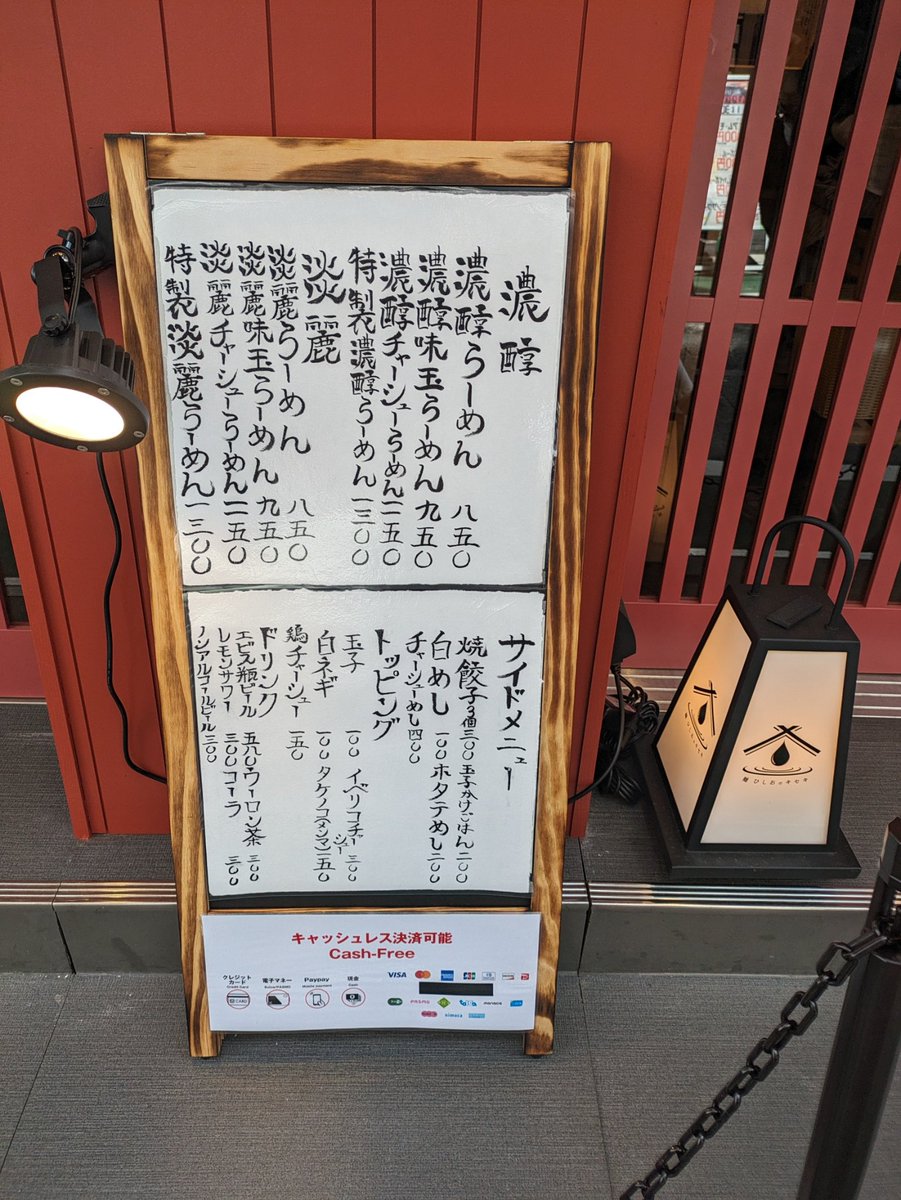 濃醇
濃醇らーめん 八五〇
濃醇味玉らーめん 九五〇
濃醇チャーシューらーめん 一一五〇
特製濃醇らーめん 一三〇〇
淡麗
淡麗らーめん 八五〇
淡麗味玉らーめん 九五〇
淡麗チャーシューらーめん 一一五〇
特製淡麗らーめん 一三〇〇
サイドメニュー
焼餃子3個 三〇〇 玉子かけごはん 二〇〇
白めし 一〇〇 ホタテめし 二〇〇
チャーシューめし 四〇〇
トッピング
玉子 一〇〇 イベリコチャーシュー 三〇〇
白ネギ 一〇〇 タケノコ(メンマ) 一五〇
鶏チャーシュー 一五〇
ドリンク
エビス瓶ビール 五八〇 ウーロン茶 三〇〇
レモンサワー 三〇〇 コーラ 三〇〇
ノンアルコールビール 三〇〇
キャッシュレス決済可能
Cash-Free
クレジットカード
Credit Card
電子マネー
Paypay
Mobile payment
現金
Cash
CARD
VISA
JCB
PASMO
nimoca
麺 ひしおのキセキ